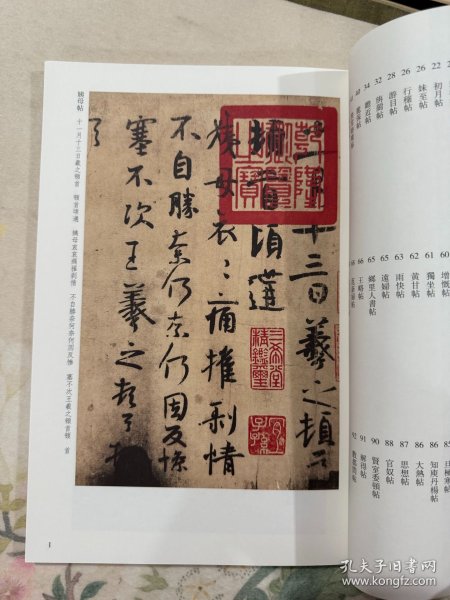 姨母帖
十一月十三日羲之頓首　頓首頃遘　姨母哀哀痛摧剝情　不自勝奈何奈何因反慘　塞不次王羲之頓首頓　首
一月十三日羲之頓首
頓首頃遘
姨母哀〻痛摧剝情
不自勝奈何奈何因反慘
塞不次王羲之頓首頓
首
乾隆御覽之寶
三希堂精鑑璽
宜子孫
1
22 初月帖
26 妹至帖
26 行穰帖
28 游目帖
32
34 瞻近帖
40
60 增慨帖
61 獨坐帖
62 黃甘帖
64 雨快帖
65 遠婦帖
65 鄉里人書帖
66 王略帖
85
86 知庾丹楊帖
86 大熱帖
87 思想帖
88 官奴帖
90 賢室委頓帖
91
92
孔夫子旧书网
www.kongfz.com